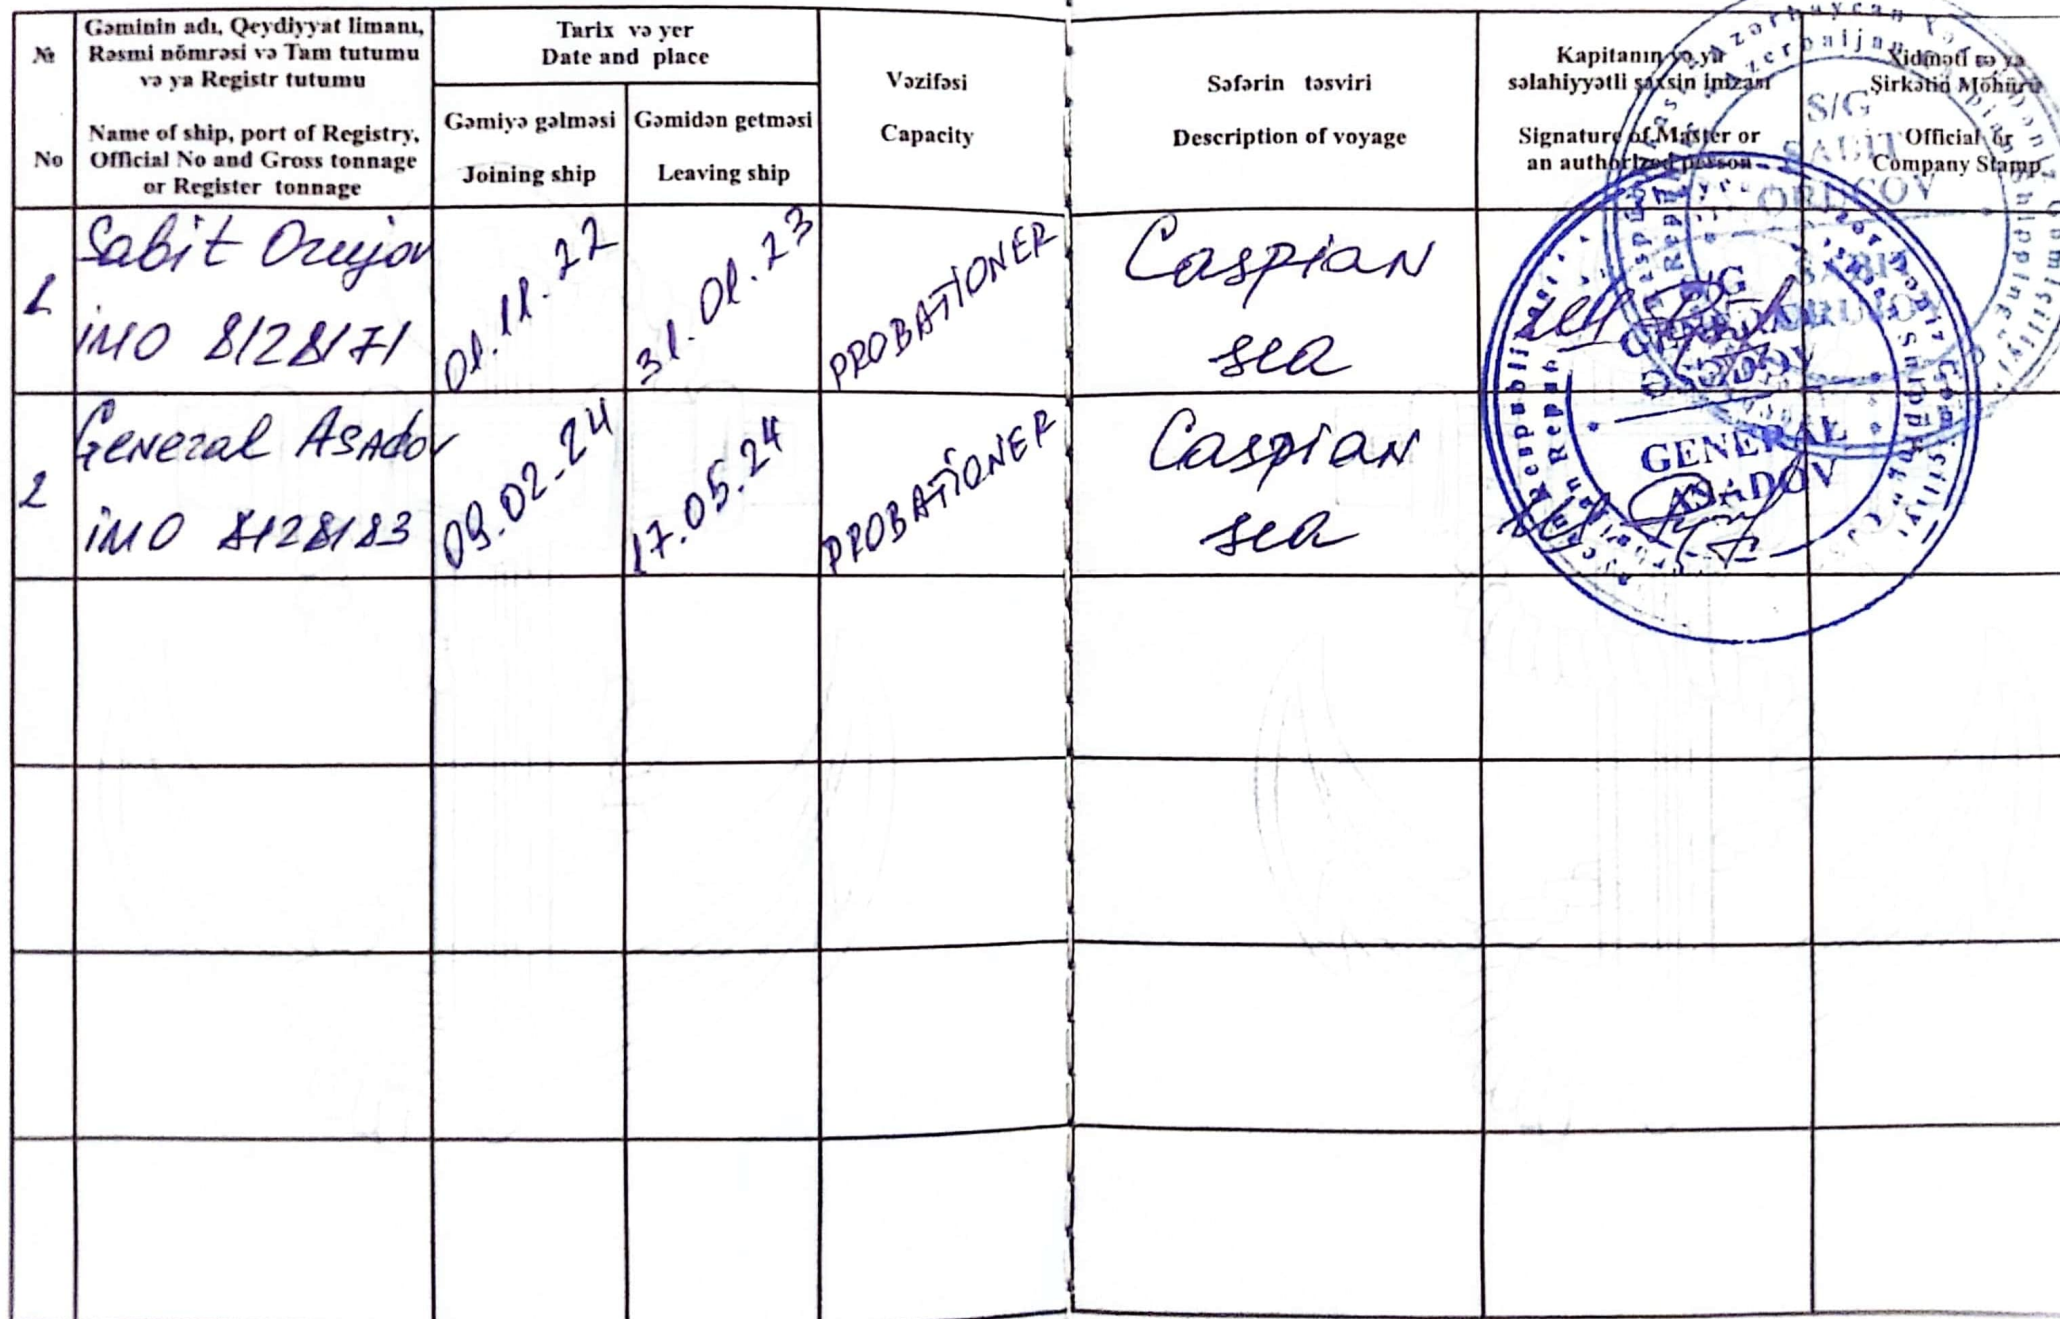 №
Gəminin adı, Qeydiyyat limanı,
Rəsmi nömrəsi və Tam tutumu
və ya Registr tutumu
No
Name of ship, port of Registry,
Official No and Gross tonnage
or Register tonnage
Tarix və yer
Date and place
Gəmiyə gəlməsi
Joining ship
Gəmidən getməsi
Leaving ship
Vəzifəsi
Capacity
Səfərin təsviri
Description of voyage
Kapitanın və ya
səlahiyyətli şəxsin imzası
Signature of Master or
an authorized person
Xidməti və ya
Şirkətin Möhürü
Official or
Company Stamp
1
Sabit Orujov
IMO 8128171
01.11.22
31.01.23
PROBATIONER
Caspian
sea
2
General Asadov
IMO 8128183
09.02.24
17.05.24
PROBATIONER
Caspian
sea
S/G
SABIT
ORUCOV
SABIT
ORUJOV
S/G
GENERAL
ƏSƏDOV
GENERAL
ASADOV